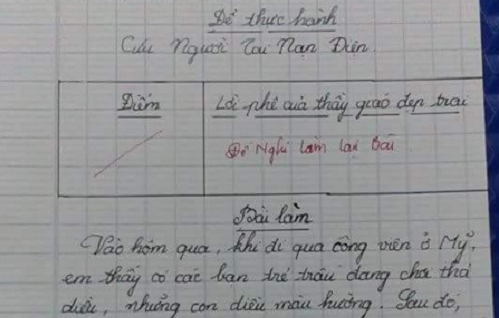 Đề thực hành
Cứu Người Tai Nạn Điện.
Điểm
Lời phê của thầy giáo đẹp trai
Đề Nghị làm lại bài
Bài làm
Vào hôm qua, khi đi qua công viên ở Mỹ,
em thấy có các bạn trẻ trâu đang chơi thả
diều, nhưng con diều màu hường. Sau đó,